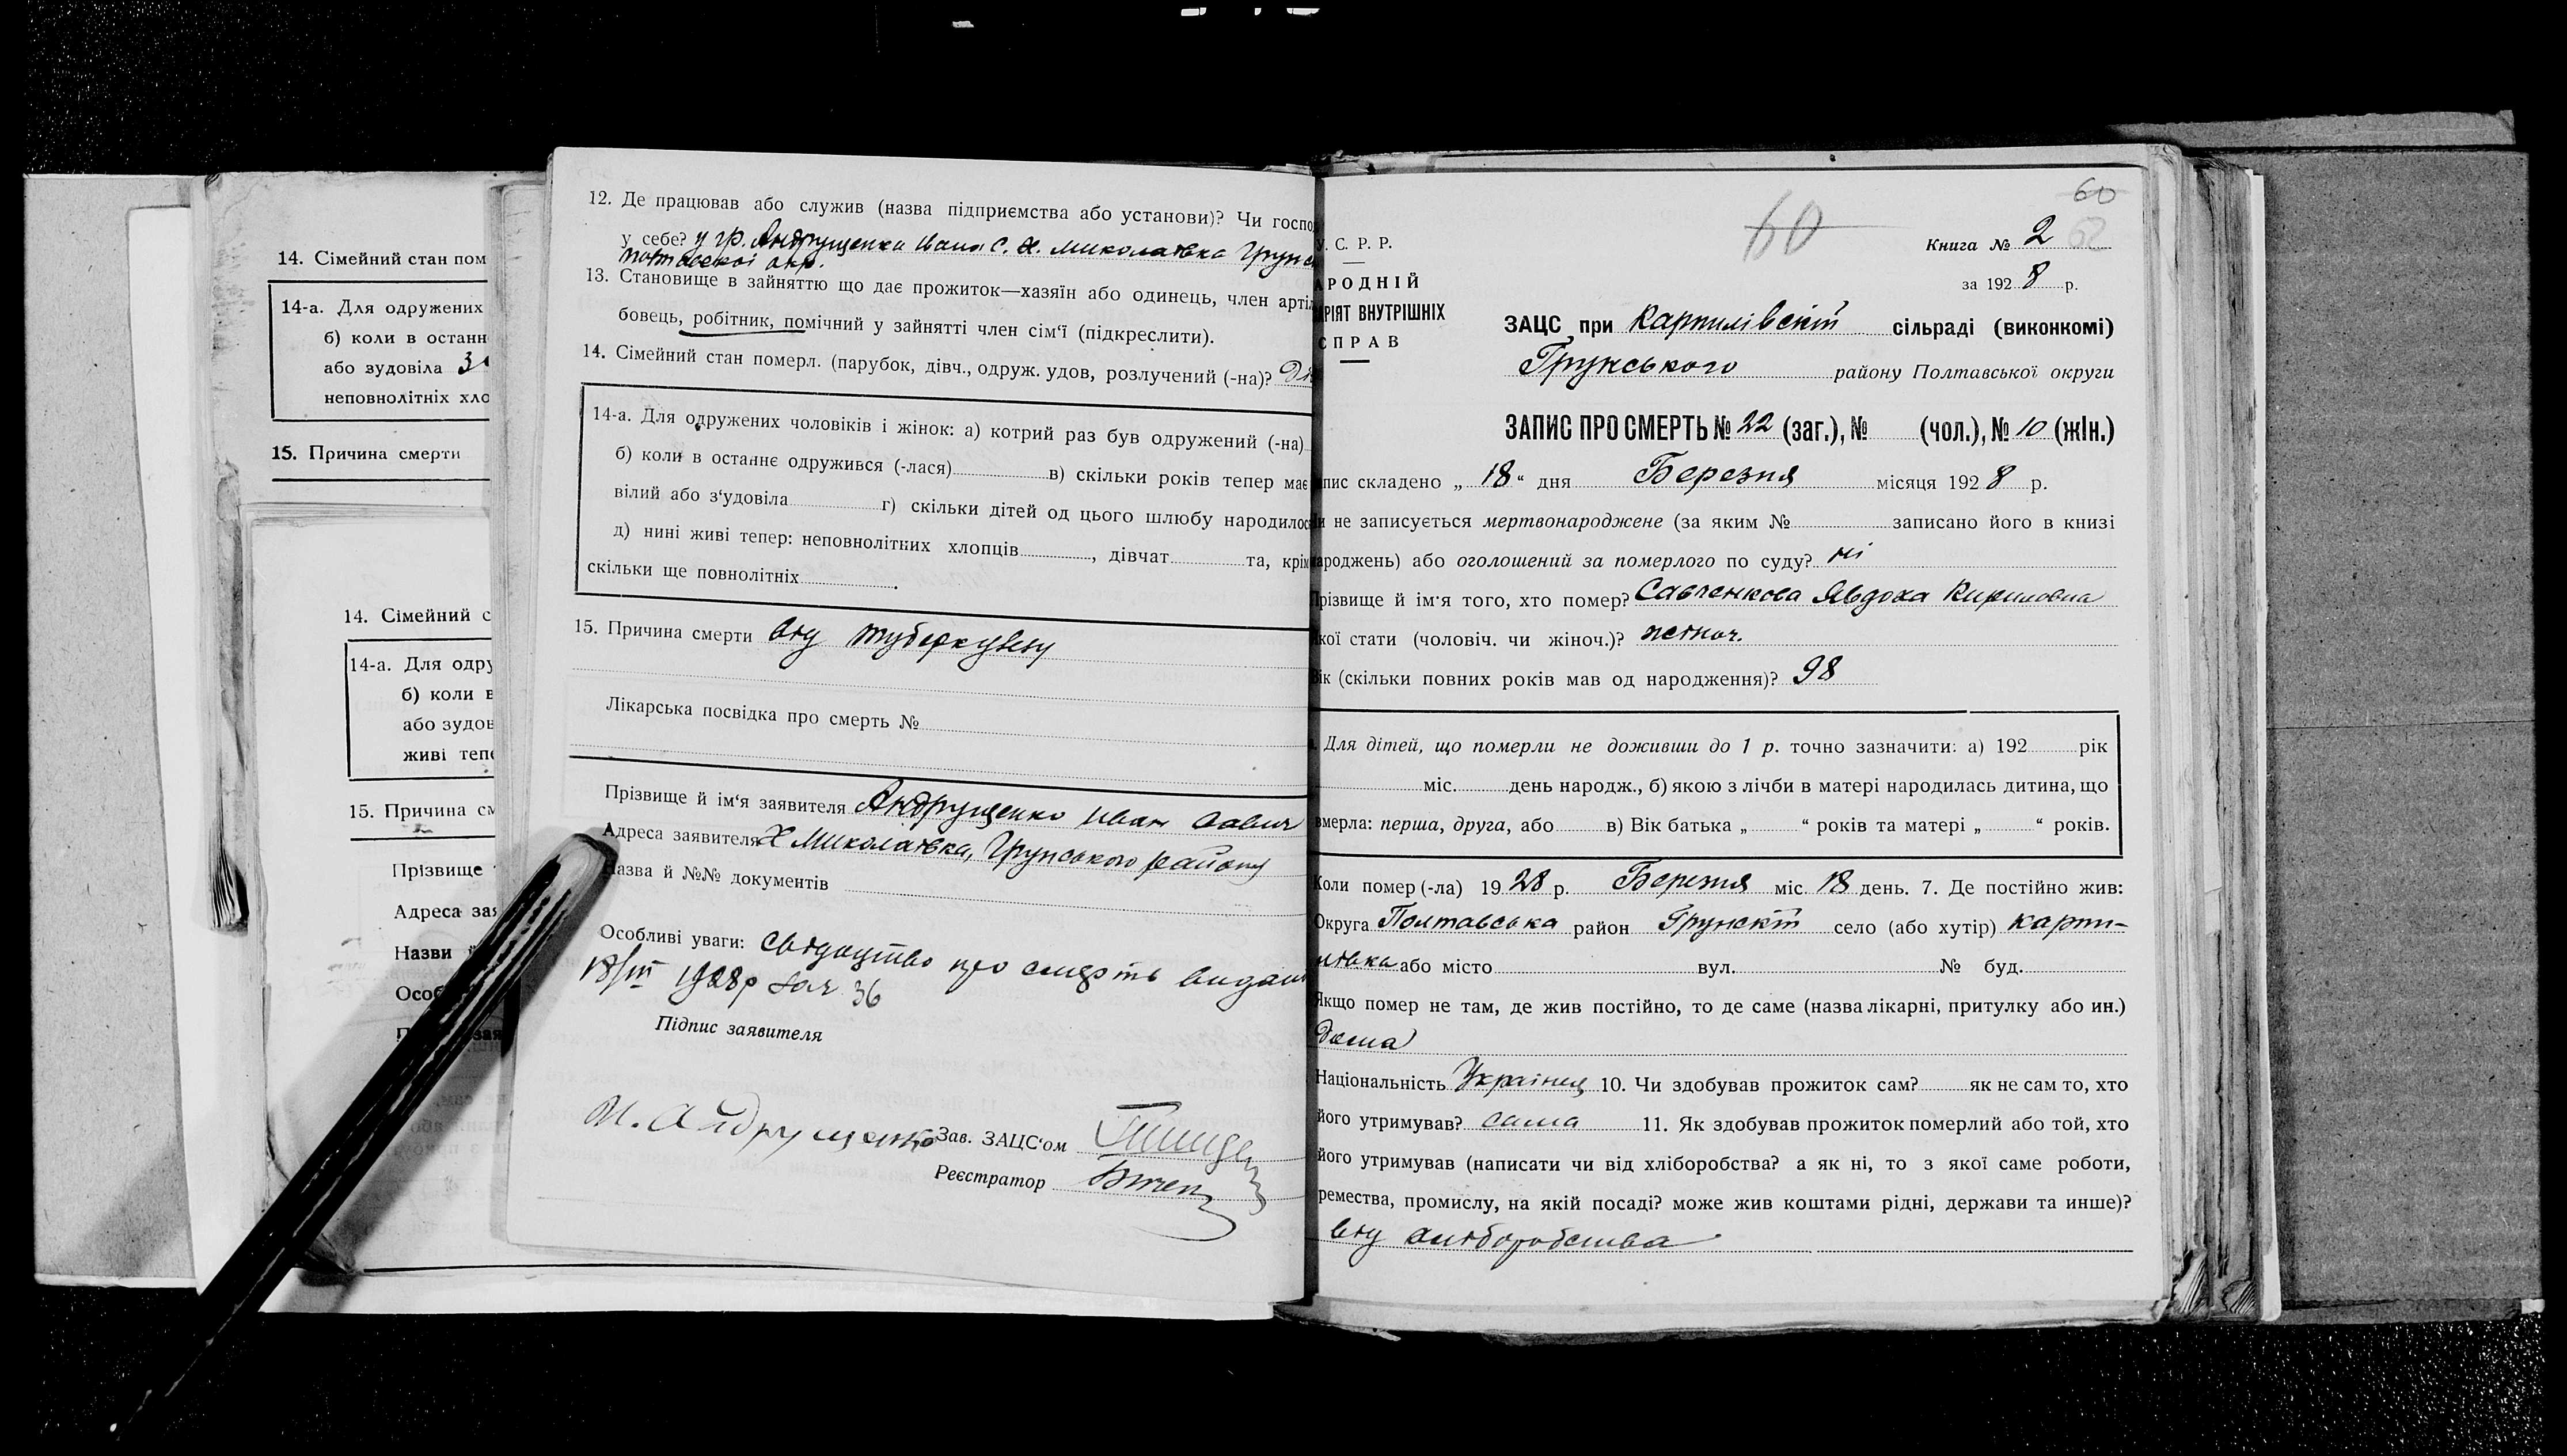 14. Сімейний стан пом
14-а. Для одружених
б) коли в останн
або зудовіла
неповнолітніх хло
15. Причина смерти
14. Сімейний с
14-а. Для одру
б) коли в
або зудов
живі тепе
15. Причина см
Прізвище
Адреса зая
Назви
Особ
12. Де працював або служив (назва підприємства або установи)? Чи госпо
у себе? у гр. Андрущенка Івана С. х. Миколаївка Грунс
Полтавської окр.
13. Становище в зайняттю що дає прожиток—хазяїн або одинець, член артіл
бовець, робітник, помічний у зайнятті член сім'ї (підкреслити).
14. Сімейний стан померл. (парубок, дівч., одруж. удов, розлучений (-на)?
14-а. Для одружених чоловіків і жінок: а) котрий раз був одружений (-на)
б) коли в останнє одружився (-лася) в) скільки років тепер має
вілий або з'удовіла г) скільки дітей од цього шлюбу народилос
д) нині живі тепер: неповнолітних хлопців , дівчат та, крім
скільки ще повнолітніх .
15. Причина смерти від туберкульозу
Лікарська посвідка про смерть №
Прізвище й ім'я заявителя Андрущенко Иван Савич
Адреса заявителя Х Миколаївка, Грунського району
Назва й №№ документів
Особливі уваги: свідоцтво про смерть видан
18/III 1928р за № 36
Підпис заявителя
И. Андрущенко Зав. ЗАЦС'ом
Реєстратор
60
60
У. С. Р. Р.
АРОДНІЙ
АРІЯТ ВНУТРІШНІХ
СПРАВ
Книга № 2
за 1928 р.
ЗАЦС при Карпилівскій сільраді (виконкомі)
Грунського району Полтавської округи
ЗАПИС ПРО СМЕРТЬ № 22 (заг.), № (чол.), № 10 (жін.)
апис складено „18“ дня Березня місяця 1928 р.
и не записується мертвонароджене (за яким № записано його в книзі
народжень) або оголошений за померлого по суду? ні
Прізвище й ім'я того, хто помер? Савченкова Явдоха Кириловна
якої стати (чоловіч. чи жіноч.)? жіноч.
Вік (скільки повних років мав од народження)? 98
Для дітей, що померли не доживши до 1 р. точно зазначити: а) 192 рік
міс. день народж., б) якою з лічби в матері народилась дитина, що
вмерла: перша, друга, або в) Вік батька „ “ років та матері „ “ років.
Коли помер (-ла) 1928 р. Березня міс. 18 день. 7. Де постійно жив:
Округа Полтавська район Грунскій село (або хутір) Карпи-
лівка або місто вул. № буд.
Якщо помер не там, де жив постійно, то де саме (назва лікарні, притулку або ин.)
дома
Національність Українец 10. Чи здобував прожиток сам? як не сам то, хто
його утримував? сама 11. Як здобував прожиток померлий або той, хто
його утримував (написати чи від хліборобства? а як ні, то з якої саме роботи,
ремества, промислу, на якій посаді? може жив коштами рідні, держави та инше)?
від хліборобства